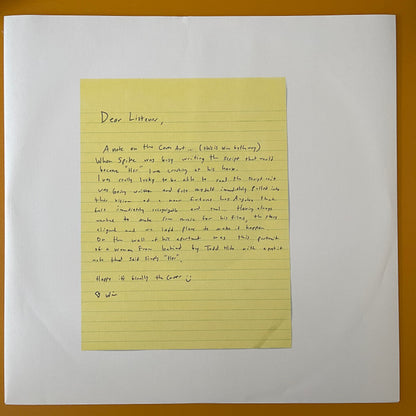 Dear Listener,
A note on the Cover Art... (this is Win btw)
When Spike was busy writing the script that would
become "Her" I was crashing at his house.
I was really lucky to be able to read the script as it
was being written and felt myself immediately pulled into
this vision of a near future Los Angeles that
felt immediately recognizable and real... Having always
wanted to make film music for his films, the stars
aligned and we laid plans to make it happen.
On the wall of his apartment was this portrait
of a woman from behind by Todd Hido with a post it
note that said simply "Her".
Happy it's finally the cover :)
♡ Win